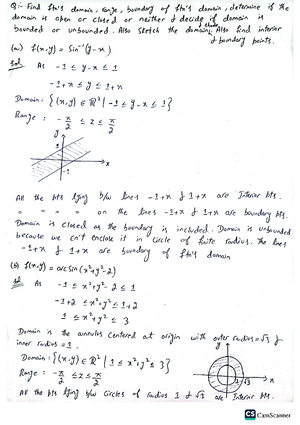 Q:- Find fn's domain, range, boundary of fn's domain, determine if the
domain is open or closed or neither & decide if domain is
bounded or unbounded. Also sketch the domain. Also find interior
& boundary points.
(a) f(x,y) = sin⁻¹(y-x)
Sol As -1 ≤ y-x ≤ 1
-1+x ≤ y ≤ 1+x
Domain: {(x,y) ∈ ℝ² | -1 ≤ y-x ≤ 1}
Range: -π/2 ≤ z ≤ π/2
y
1
x
-1
All the pts lying b/w lines -1+x & 1+x are Interior pts.
" " " " on the lines -1+x & 1+x are boundary pts.
Domain is closed as the boundary is included. Domain is unbounded
because we can't enclose it in circle of finite radius. The lines
-1+x & 1+x are boundary of fn's domain
(b) f(x,y) = arcsin(x²+y²-2)
Sol As -1 ≤ x²+y²-2 ≤ 1
-1+2 ≤ x²+y² ≤ 1+2
1 ≤ x²+y² ≤ 3
Domain is the annulus centered at origin with outer radius=√3 &
inner radius=1.
Domain: {(x,y) ∈ ℝ² | 1 ≤ x²+y² ≤ 3}
Range: -π/2 ≤ z ≤ π/2
1 √3
All the pts lying b/w circles of radius 1 & √3 are Interior pts.
CS CamScanner